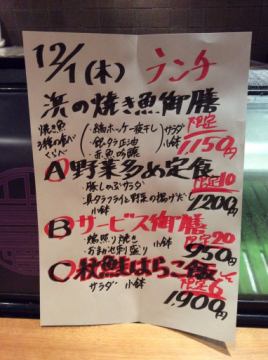 12/1(木) ランチ
浜の焼き魚御膳
焼き魚
3種の食べ
くらべ
・縞ホッケ一夜干し
・銀タラ正油
・赤魚吟醸
サラダ
小鉢
限定
1150円
A 野菜多め定食
・豚しゃぶサラダ
限定10
・真タラフライと野菜の揚げだし
小鉢
1200円
B サービス御膳
・鰤照り焼き 小鉢
限定20
・おまかせ刺盛り
950円
C 秋鮭はらこ飯
サラダ 小鉢
限定6
1,900円